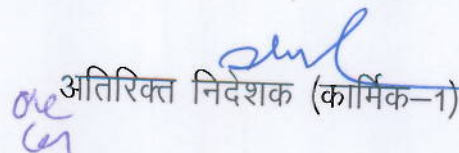 अतिरिक्त निदेशक (कार्मिक–1)